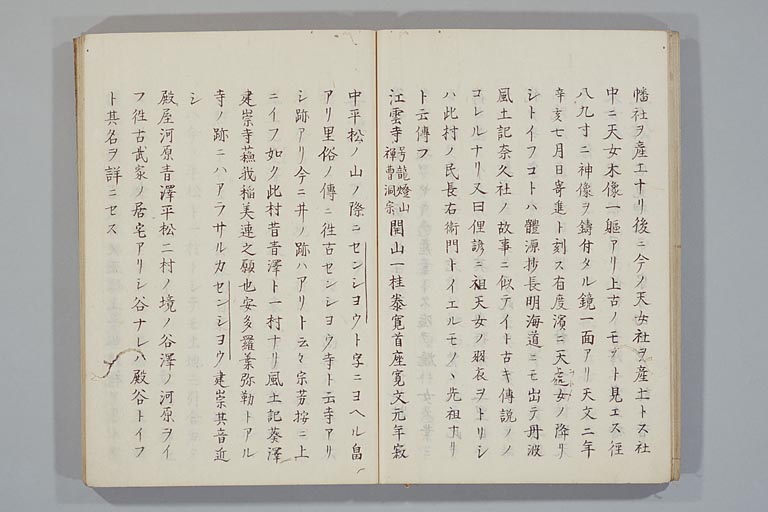 幡社ヲ產エナリ後ニ今ノ天女社ヲ產土トス社
中ニ天女木像一軀アリ上古ノモノト見エス徑
八九寸ニ神像ヲ鑄付タル鏡一面アリ天文二年
辛亥七月日寄進ト刻ス有度濱ニ天處女ノ降リ
シトイフコトハ體源抄長明海道ニモ出テ丹波
風土記奈久社ノ故事ニ似テイト古キ傳説ノノ
コレルナリ又曰俚諺ニ祖天女ノ羽衣ヲトリシ
ハ此村ノ民長右衛門トイエルモノヽ先祖ナリ
ト云傳フ
江雲寺 号龍燈山 禪曹洞宗 開山一桂㤗寛首座寛文元年寂
中平松ノ山ノ際ニセンシヨウト字ニヨヘル畠
アリ里俗ノ傳ニ徃古センシヨウ寺ト云寺アリ
シ跡アリ今ニ井ノ跡ハアリト云々宗芳按ニ上
ニイフ如ク此村昔青澤ト一村ナリ風土記葵澤
建崇寺蘓我稲美連之願也安多羅葉弥勒トアル
寺ノ跡ニハアラサルカセンシヨウ建崇其音近
シ
殿屋河原青澤平松二村ノ境ノ谷澤ノ河原ヲイ
フ徃古武家ノ居宅アリシ谷ナレハ殿谷トイフ
ト其名ヲ詳ニセス